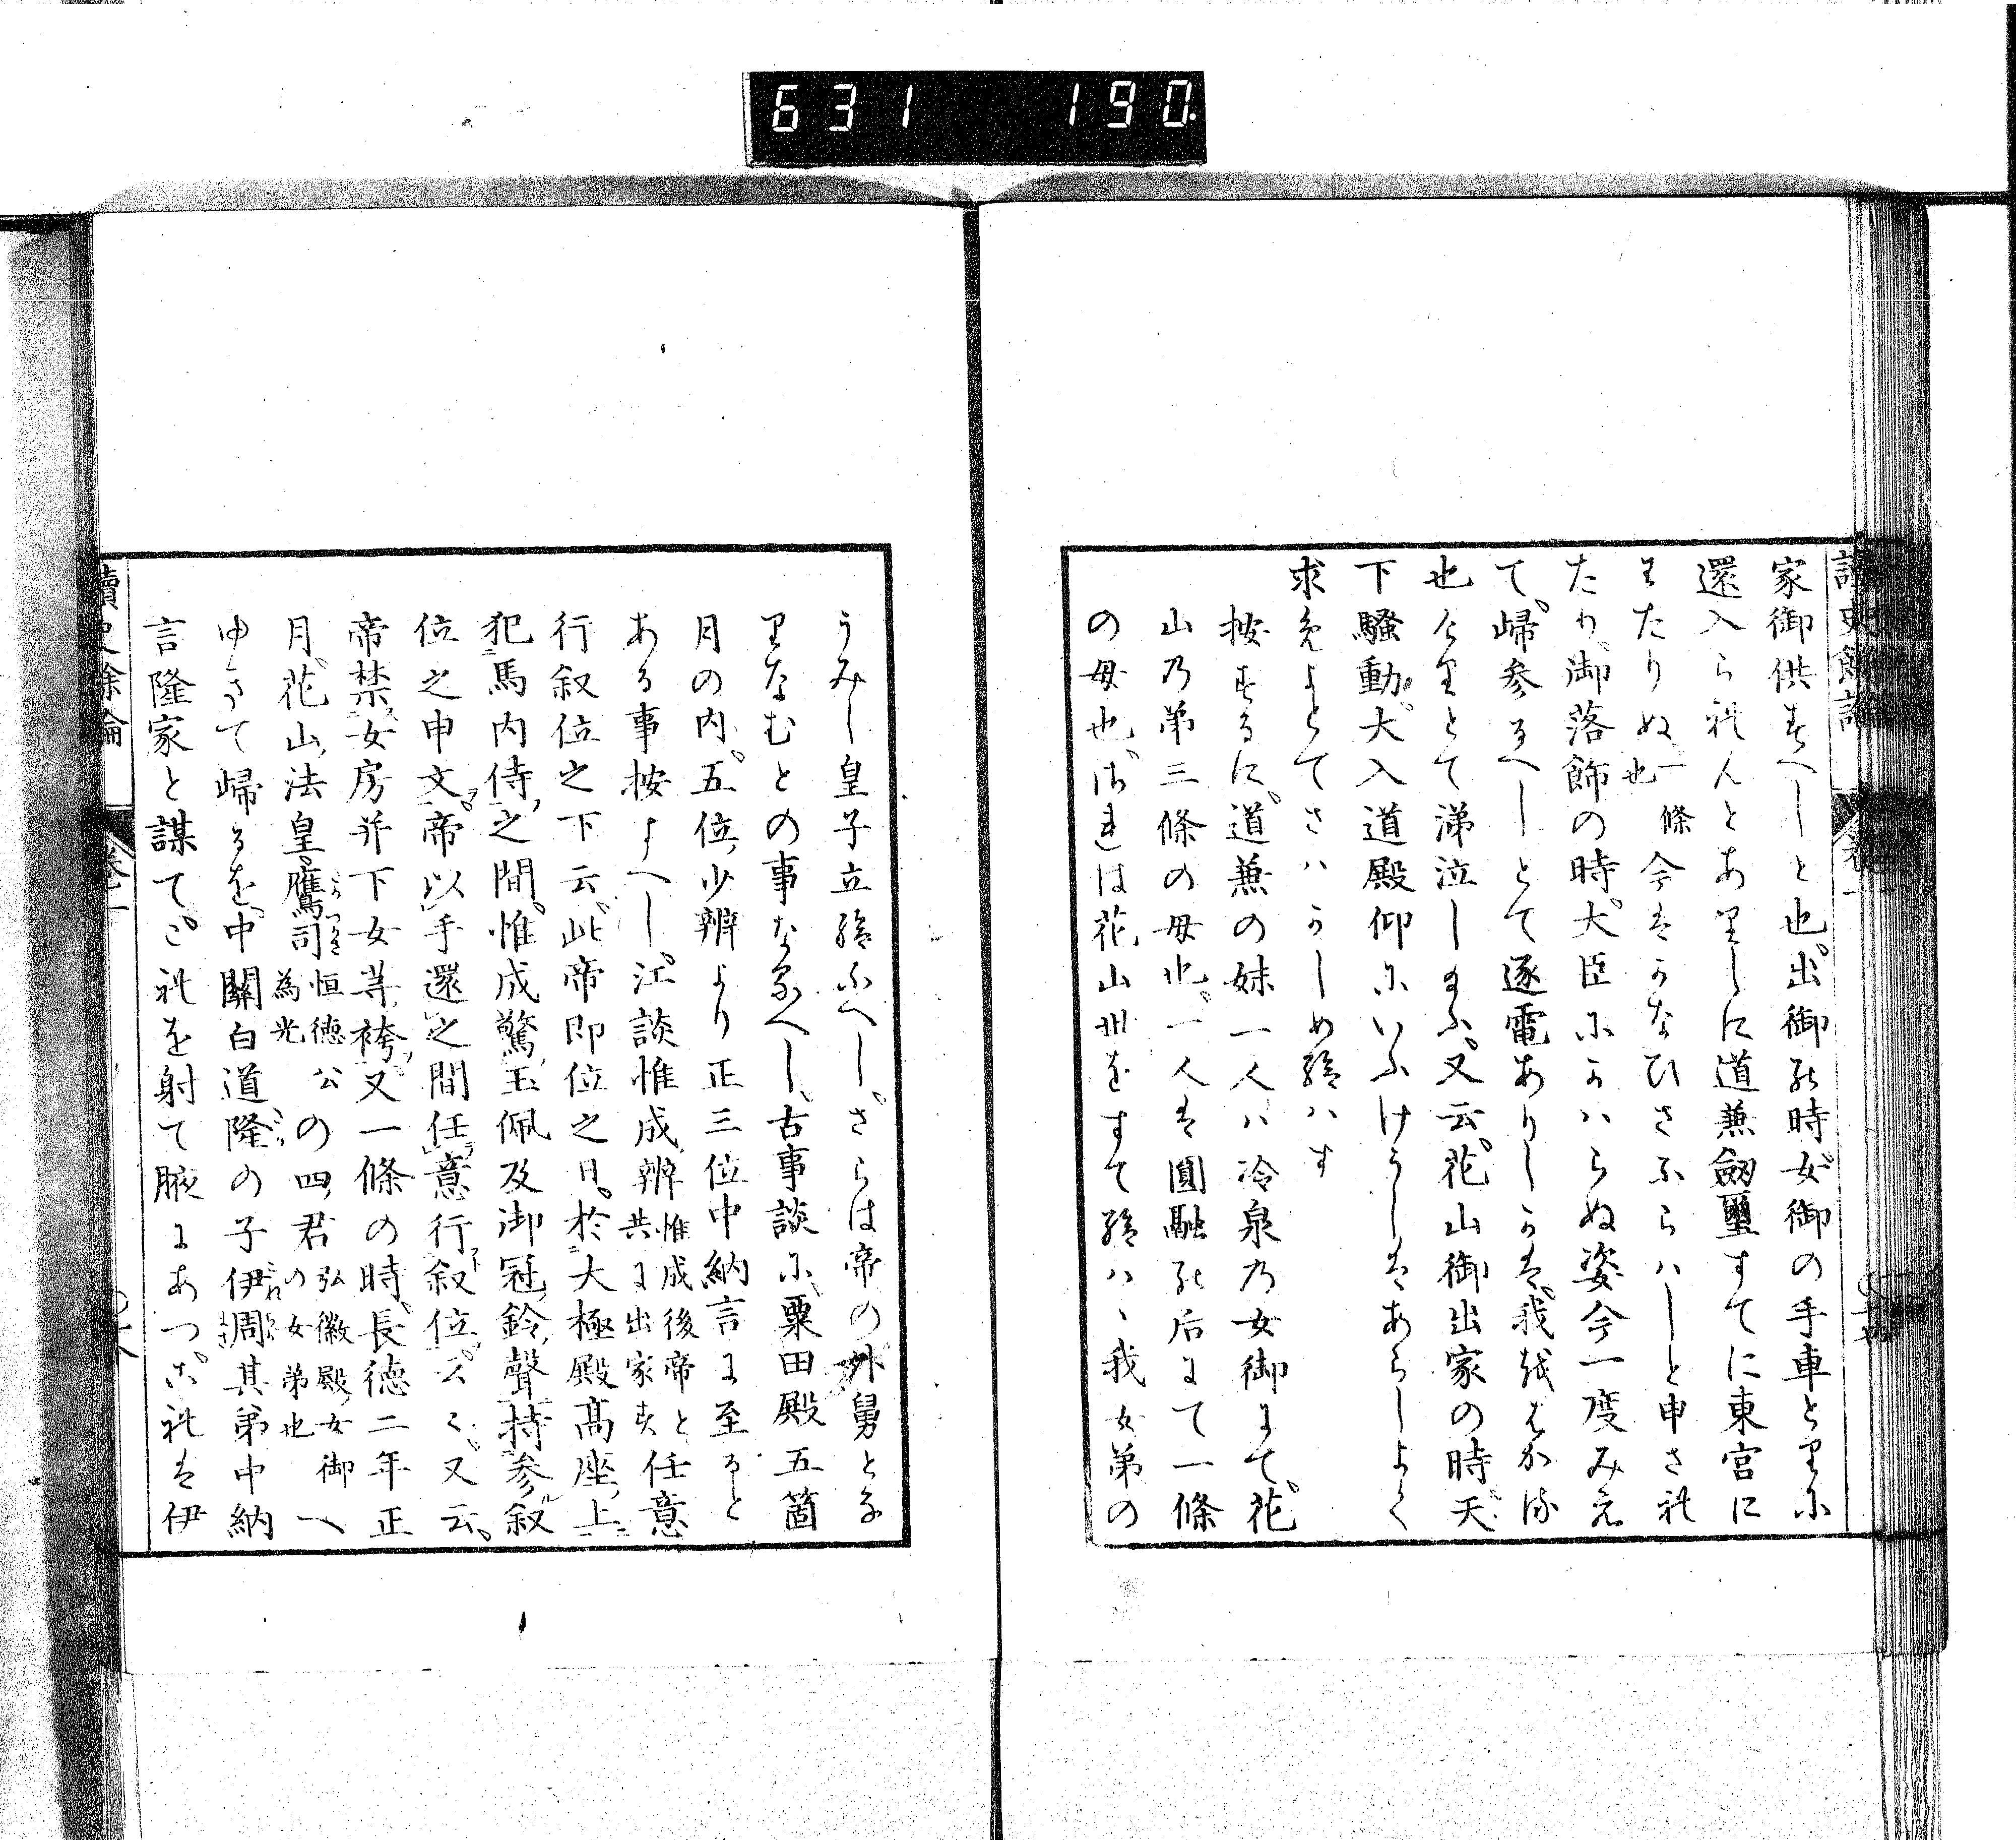 631 190
讀史餘論 卷一
家御供すへしと也出御の時女御の手車とりに
還入られんとありしに道兼劔璽すてに東宮に
わたりぬ一條也今はかなひさふらはしと申され
たり御落飾の時大臣にかはらぬ姿今一度みえ
て歸参るへしとて逐電ありしかは我をはかる
也けりとて涕泣し給ふ又云花山御出家の時天
下騷動大入道殿仰にいふけうしはあらしよく
求めよとてさはかしめ給はす
按するに道兼の妹一人は冷泉の女御にて花
山の弟三條の母也一人は圓融の后にて一條
の母也されは花山世をすて給はゝ我女弟の
うみし皇子立給ふへしさらは帝の外舅とな
りなむとの事なるへし古事談に粟田殿五箇
月の内五位少辨より正三位中納言に至ると
ある事按すへし江談惟成辨惟成後帝と共に出家す任意
行叙位之下云此帝即位之日於大極殿高座上
犯馬内侍之間惟成驚玉佩及御冠鈴聲持参叙
位之申文帝以手還之間任意行叙位云々又云
帝禁女房并下女等袴又一條の時長德二年正
月花山法皇鷹司恒德公為光の四君弘徽殿女御の女弟也へ
ゆきて歸るを中關白道隆の子伊周其弟中納
言隆家と謀てこれを射て腋にあつこれは伊
讀史餘論 卷一